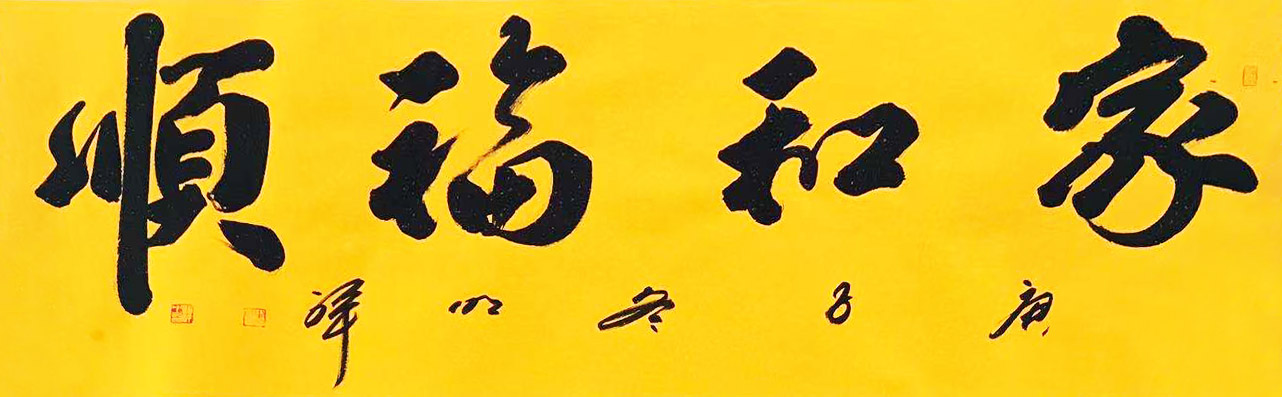 家和福順
庚子冬祥